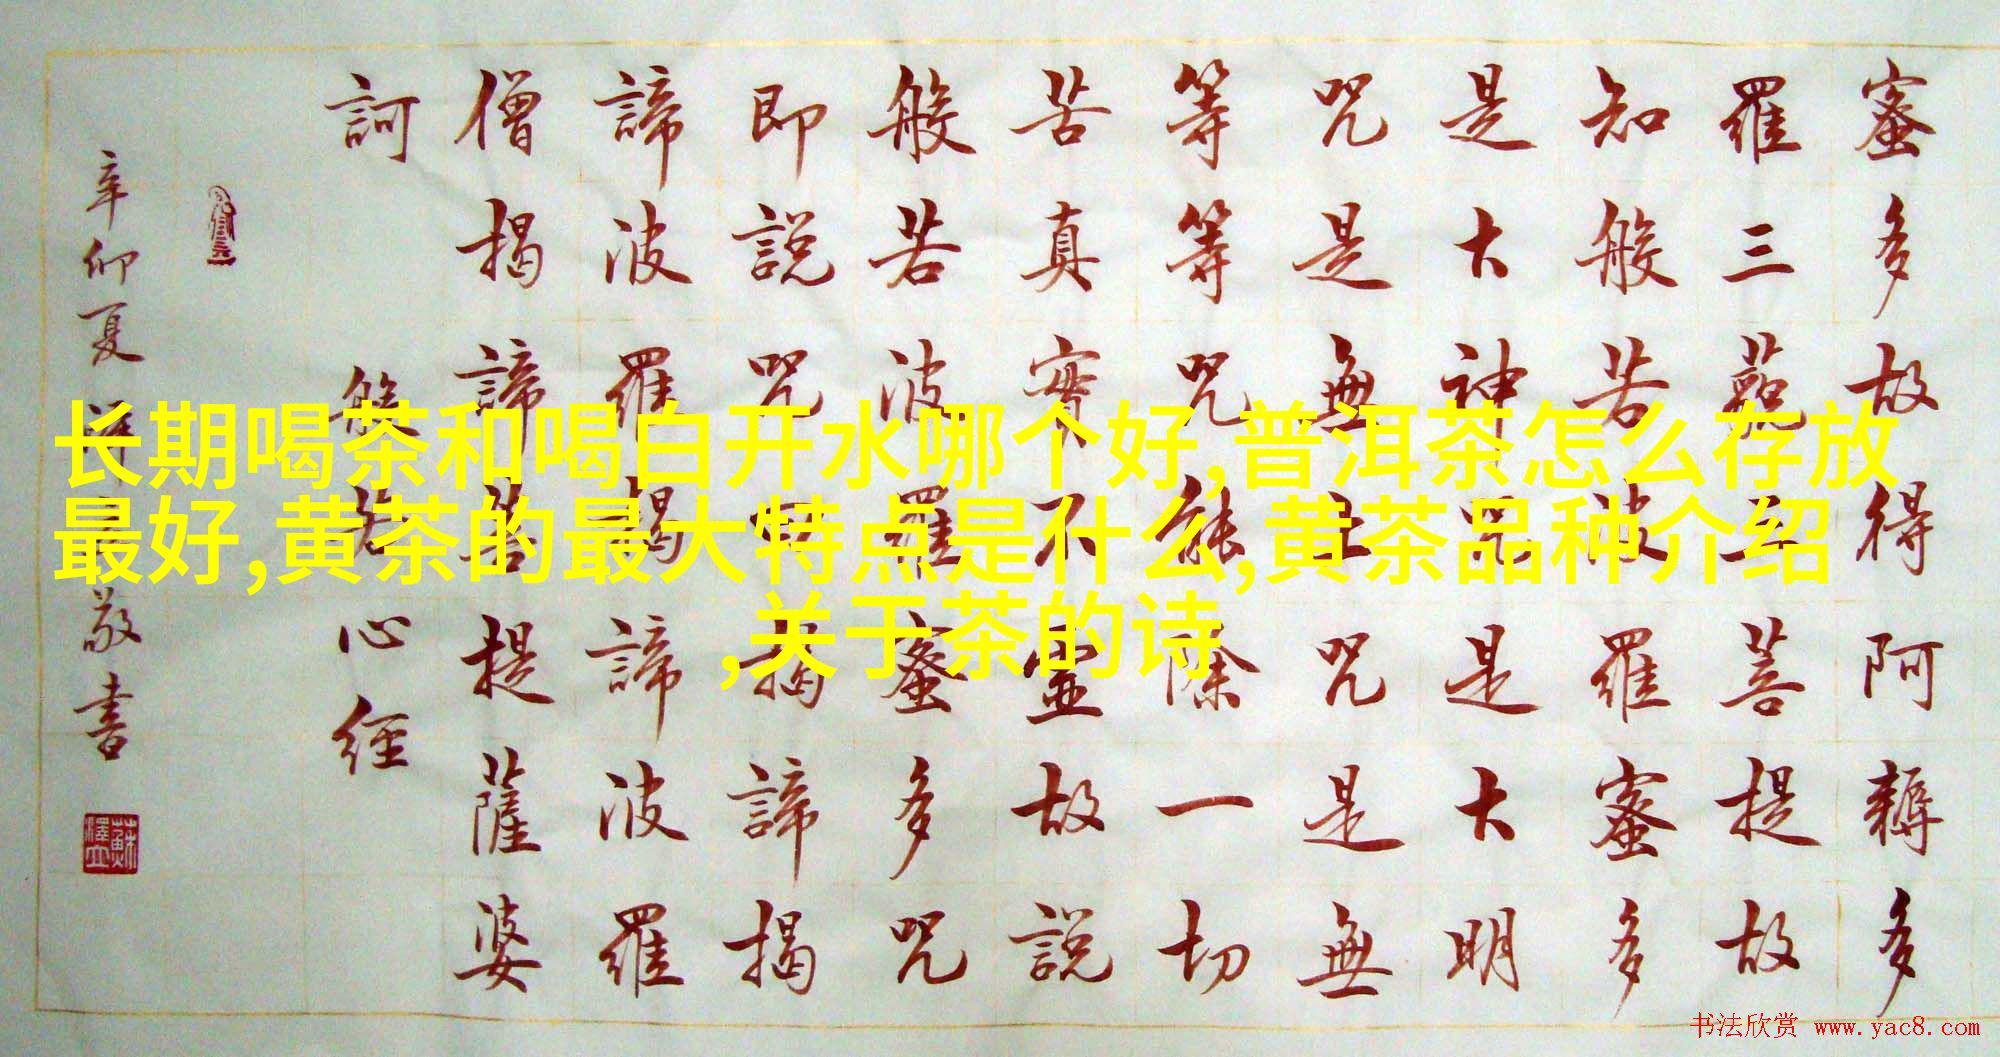 蜜多故得阿耨多
羅三藐三菩提故
知般若波羅蜜多
是大神咒是大明
咒是無上咒是無
等等咒能除一切
苦真實不虛故說
般若波羅蜜多咒
即說咒曰揭諦揭
諦波羅揭諦波羅
僧揭諦菩提薩婆
訶 般若心經
辛卯夏敬書
长期喝茶和喝白开水哪个好,普洱茶怎么存放
最好,黄茶的最大特点是什么,黄茶品种介绍
,关于茶的诗
书法欣赏 www.yac8.com